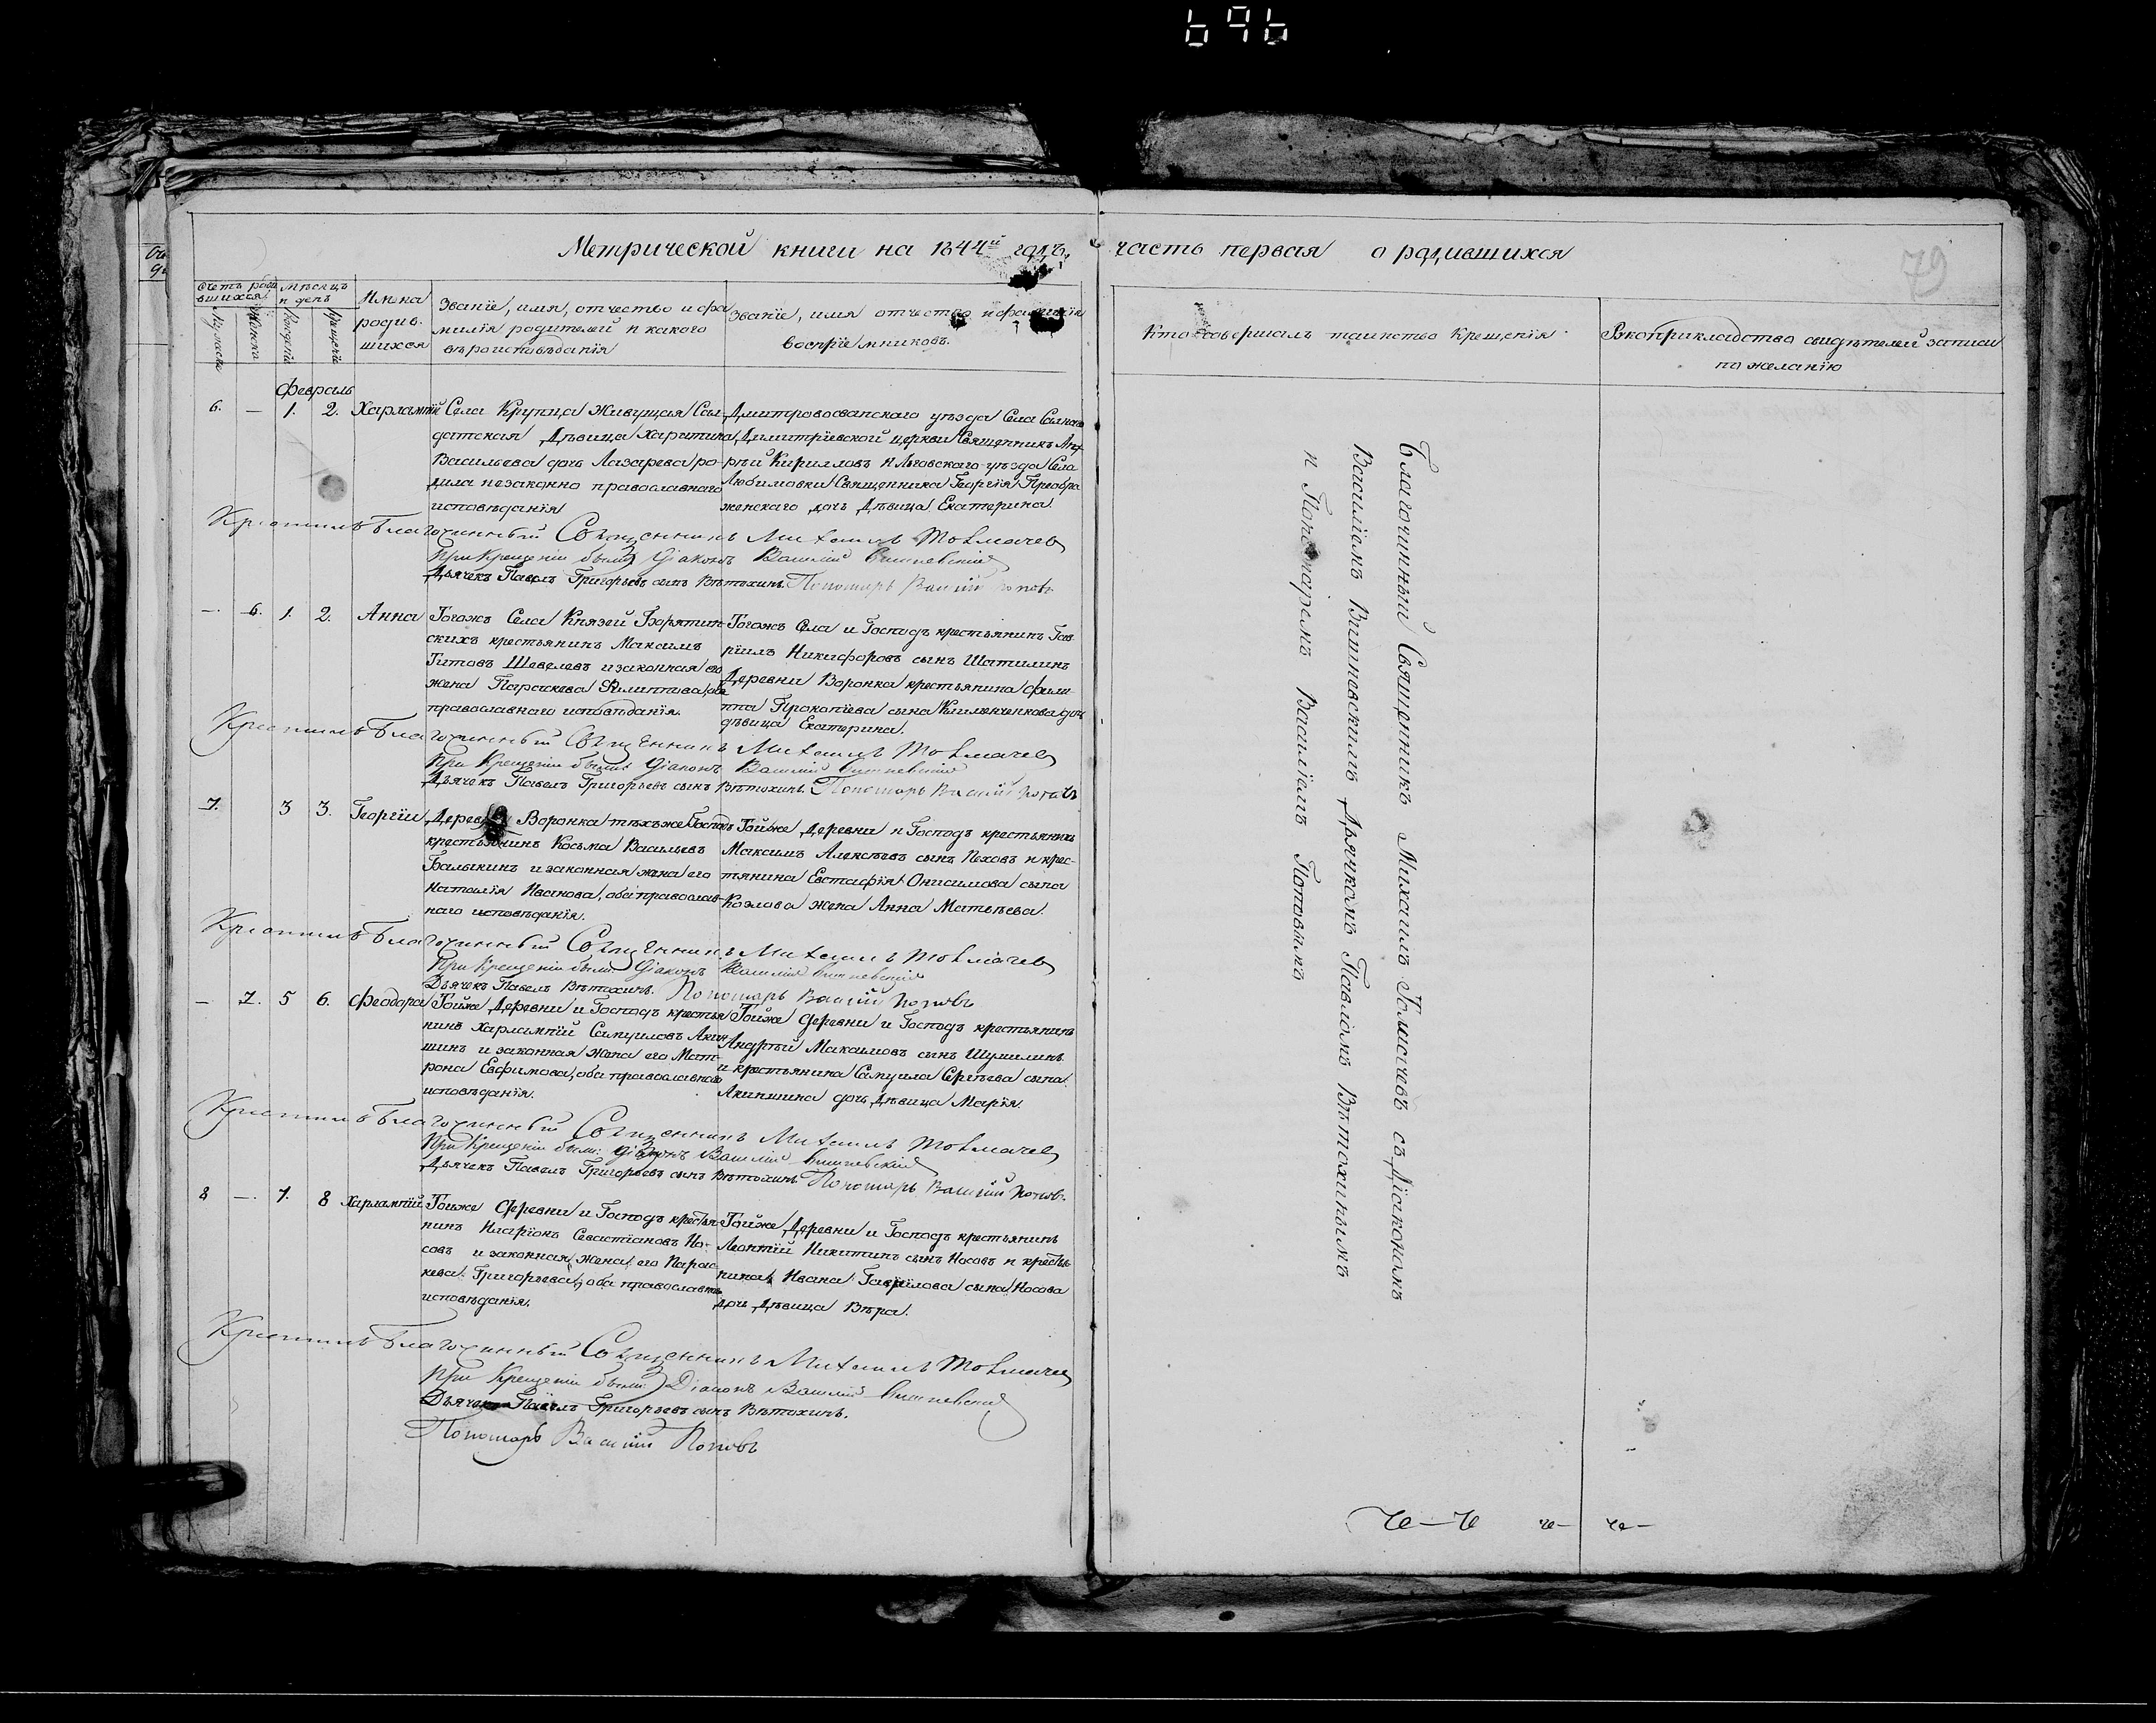 696
Метрической книги на 1844й годъ, часть первая о родившихся
79
Счетъ роди
вшихся
Мѣсяцъ
и день
Мужеска
Женска
Рожденія
Крещенія
Имена
родив-
шихся
Званіе, имя, отчество и фа
милія родителей и какого
вѣроисповѣданія
Званіе, имя отчество и фамилія
воспріемниковъ.
Кто совершалъ таинство Крещенія
Рукоприкладство свидѣтелей записи
по желанію
Февраль
6. — 1. 2. Харлампій
Села Крупца живущая Сол-
датская Дѣвица Харитина
Васильева дочь Лазарева ро-
дила незаконно православнаго
исповѣданія
Дмитровосвапскаго уѣзда Села
Димитріевской церкви Священникъ Анд
рѣй Кирилловъ и Льговскаго уѣзда Села
Любимовки Священника Георгія Преобра
женскаго дочь Дѣвица Екатерина.
Крестилъ Благочинный Священникъ Михаилъ Толмачев
При Крещеніи были Діаконъ Василій Вишневскій
Дьячекъ Павелъ Григорьевъ сынъ Вѣтохинъ. Пономарь Василій Поповъ
— 6. 1. 2. Анна
Тогожъ Села Князей Борятин-
скихъ крестьянинъ Максимъ
Титовъ Шевелевъ и законная его
жена Параскева Филиппова, оба
православнаго исповѣданія.
Тогожъ Села и Господъ крестьянинъ Гав
ріилъ Никифоровъ сынъ Шатилинъ
Деревни Воронка крестьянина Фили-
ппа Прокопіева сына Клименченкова дочь
дѣвица Екатерина.
Крестилъ Благочинный Священникъ Михаилъ Толмачев
При Крещеніи были Діаконъ Василій Вишневскій
Дьячекъ Павелъ Григорьевъ сынъ Вѣтохинъ. Пономарь Василій Поповъ
7. 3 3. Георгій
Деревни Воронка тѣхъже Господъ
крестьянинъ Косьма Васильевъ
Балыкинъ и законная жена его
Наталія Иванова, оба православ-
наго исповѣданія.
Тойже Деревни и Господъ крестьянинъ
Максимъ Алексѣевъ сынъ Пеховъ и крес-
тянина Евстафія Онисимова сына
Козлова жена Анна Матвѣева.
Крестилъ Благочинный Священникъ Михаилъ Толмачев
При Крещеніи были Діаконъ Василій Вишневскій
Дьячекъ Павелъ Вѣтохинъ. Пономарь Василій Поповъ
— 7. 5 6. Феодора
Тойже Деревни и Господъ крестья
нинъ Харлампій Самуиловъ Акин-
шинъ и законная жена его Мат-
рона Евфимова, оба православнаго
исповѣданія.
Тойже деревни и Господъ крестьянинъ
Андрѣй Максимовъ сынъ Шумилинъ
и крестьянина Самуила Сергѣева сына
Акиншина дочь Дѣвица Марія.
Крестилъ Благочинный Священникъ Михаилъ Толмачев
При Крещеніи были: Діаконъ Василій Вишневскій
Дьячекъ Павелъ Григорьевъ сынъ Вѣтохинъ Пономарь Василій Поповъ.
8 —. 7. 8 Харлампій
Тойже Деревни и Господъ крестья-
нинъ Иларіонъ Севастіановъ Но-
совъ и законная жена его Парас-
кева Григорьева, оба православнаго
исповѣданія.
Тойже Деревни и Господъ крестьянинъ
Леонтій Никитинъ сынъ Носовъ и крестья
нина Ивана Гаврілова сына Носова
дочь Дѣвица Вѣра.
Крестилъ Благочинный Священникъ Михаилъ Толмачев
При Крещеніи были Діаконъ Василій Вишневскій
Дьячекъ Павелъ Григорьевъ сынъ Вѣтохинъ.
Пономарь Василій Поповъ
Благочинный Священникъ Михаилъ Толмачевъ съ Діакономъ
Василіемъ Вишневскимъ Дьячкомъ Павломъ Вѣтохинымъ
и Пономаремъ Василіемъ Поповымъ